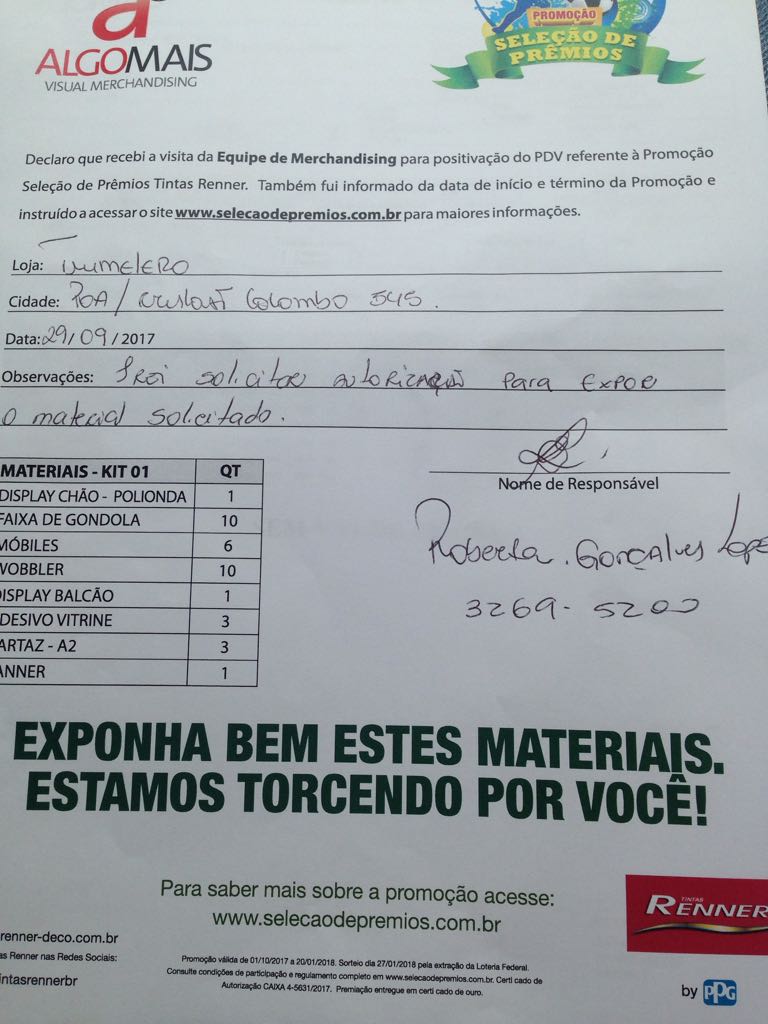 ALGOMAIS
VISUAL MERCHANDISING
PROMOÇÃO
SELEÇÃO DE
PRÊMIOS
Declaro que recebi a visita da Equipe de Merchandising para positivação do PDV referente à Promoção
Seleção de Prêmios Tintas Renner. Também fui informado da data de início e término da Promoção e
instruído a acessar o site www.selecaodepremios.com.br para maiores informações.
Loja: TUMELERO
Cidade: POA / Colombo 545.
Data: 29/09/2017
Observações: Irei solicitar autorização para EXPOR
o material solicitado.
MATERIAIS - KIT 01 QT
DISPLAY CHÃO - POLIONDA 1
FAIXA DE GONDOLA 10
MÓBILES 6
WOBBLER 10
DISPLAY BALCÃO 1
DESIVO VITRINE 3
ARTAZ - A2 3
ANNER 1
Nome de Responsável
Roberta. Gonçalves Lope
3269-5200
EXPONHA BEM ESTES MATERIAIS.
ESTAMOS TORCENDO POR VOCÊ!
Para saber mais sobre a promoção acesse:
www.selecaodepremios.com.br
TINTAS
RENNER
by PPG
renner-deco.com.br
as Renner nas Redes Sociais:
intasrennerbr
Promoção válida de 01/10/2017 a 20/01/2018. Sorteio dia 27/01/2018 pela extração da Loteria Federal.
Consulte condições de participação e regulamento completo em www.selecaodepremios.com.br. Certi cado de
Autorização CAIXA 4-5631/2017. Premiação entregue em certi cado de ouro.